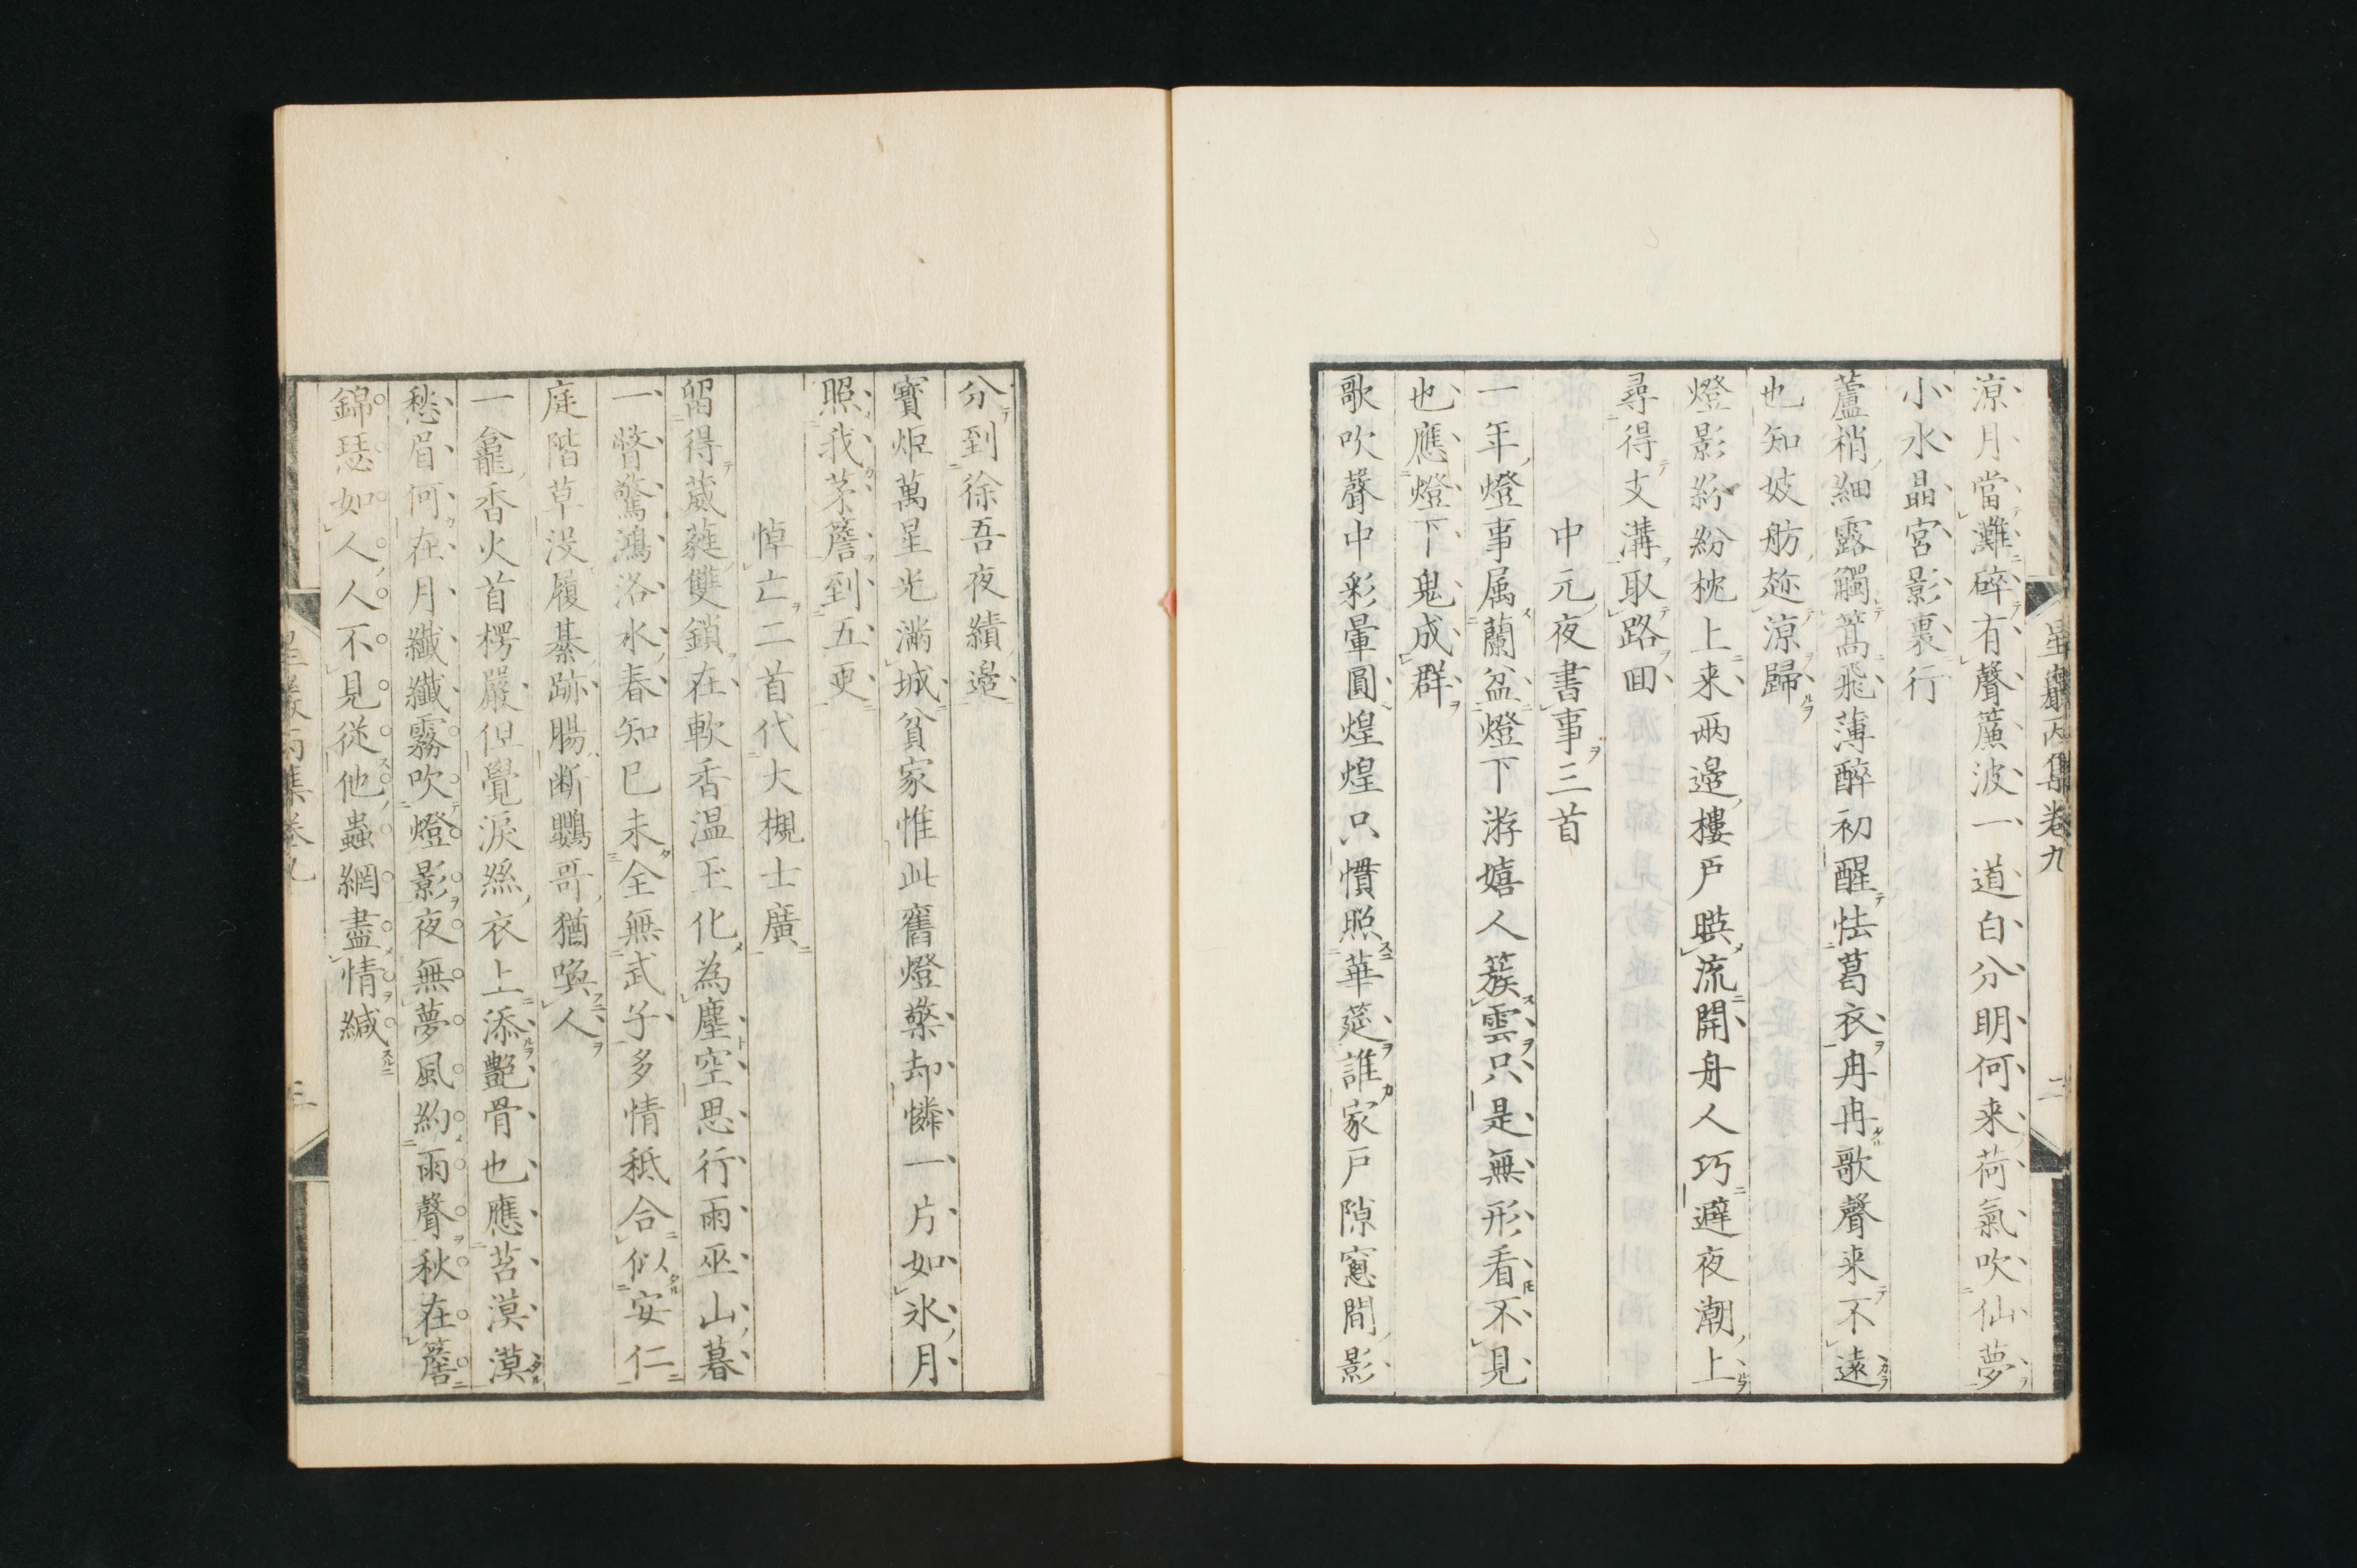 星巖丙集卷九
二
涼月當灘碎有聲簾波一道白分明何来荷氣吹仙夢
小水晶宮影裏行
蘆梢細露觸篙飛薄醉初醒怯葛衣冉冉歌聲来不遠
也知妓舫趂涼歸
燈影紛紛枕上来兩邊樓戶暎流開舟人巧避夜潮上
尋得支溝取路回
中元夜書事三首
一年燈事属蘭盆燈下游嬉人簇雲只是無形看不見
也應燈下鬼成群
歌吹聲中彩暈圓煌煌只慣照華筵誰家戶隙窻間影
分到徐吾夜績邊
寳炬萬星光滿城貧家惟此舊燈檠却憐一片如氷月
照我茅簷到五更
悼亡二首代大槻士廣
留得葳蕤雙鎖在軟香温玉化為塵空思行雨巫山暮
一瞥驚鴻洛水春知巳未全無武子多情秖合似安仁
庭階草没履綦跡腸断鸚哥猶喚人
一龕香火首楞嚴但覺淚絲衣上添艶骨也應苔漠漠
愁眉何在月纖纖霧吹燈影夜無夢風約雨聲秋在簷
錦瑟如人人不見從他蟲網盡情緘
星巖丙集卷九
三